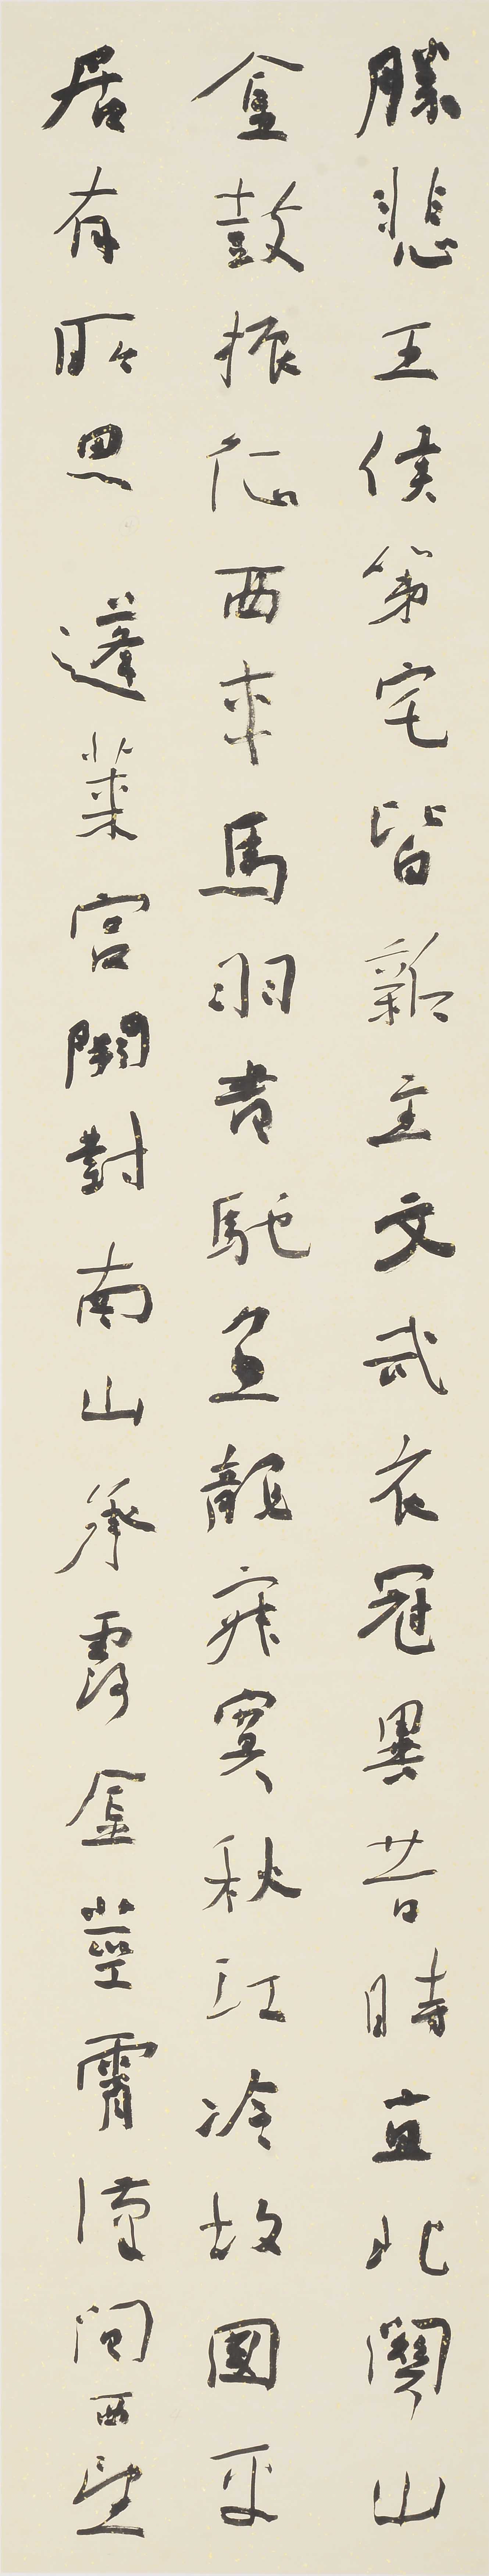 勝悲王侯第宅皆新主文武衣冠異昔時直北關山
金鼓振征西車馬羽書馳魚龍寂寞秋江冷故國平
居有所思　蓬萊宮闕對南山承露金莖霄漢間西望